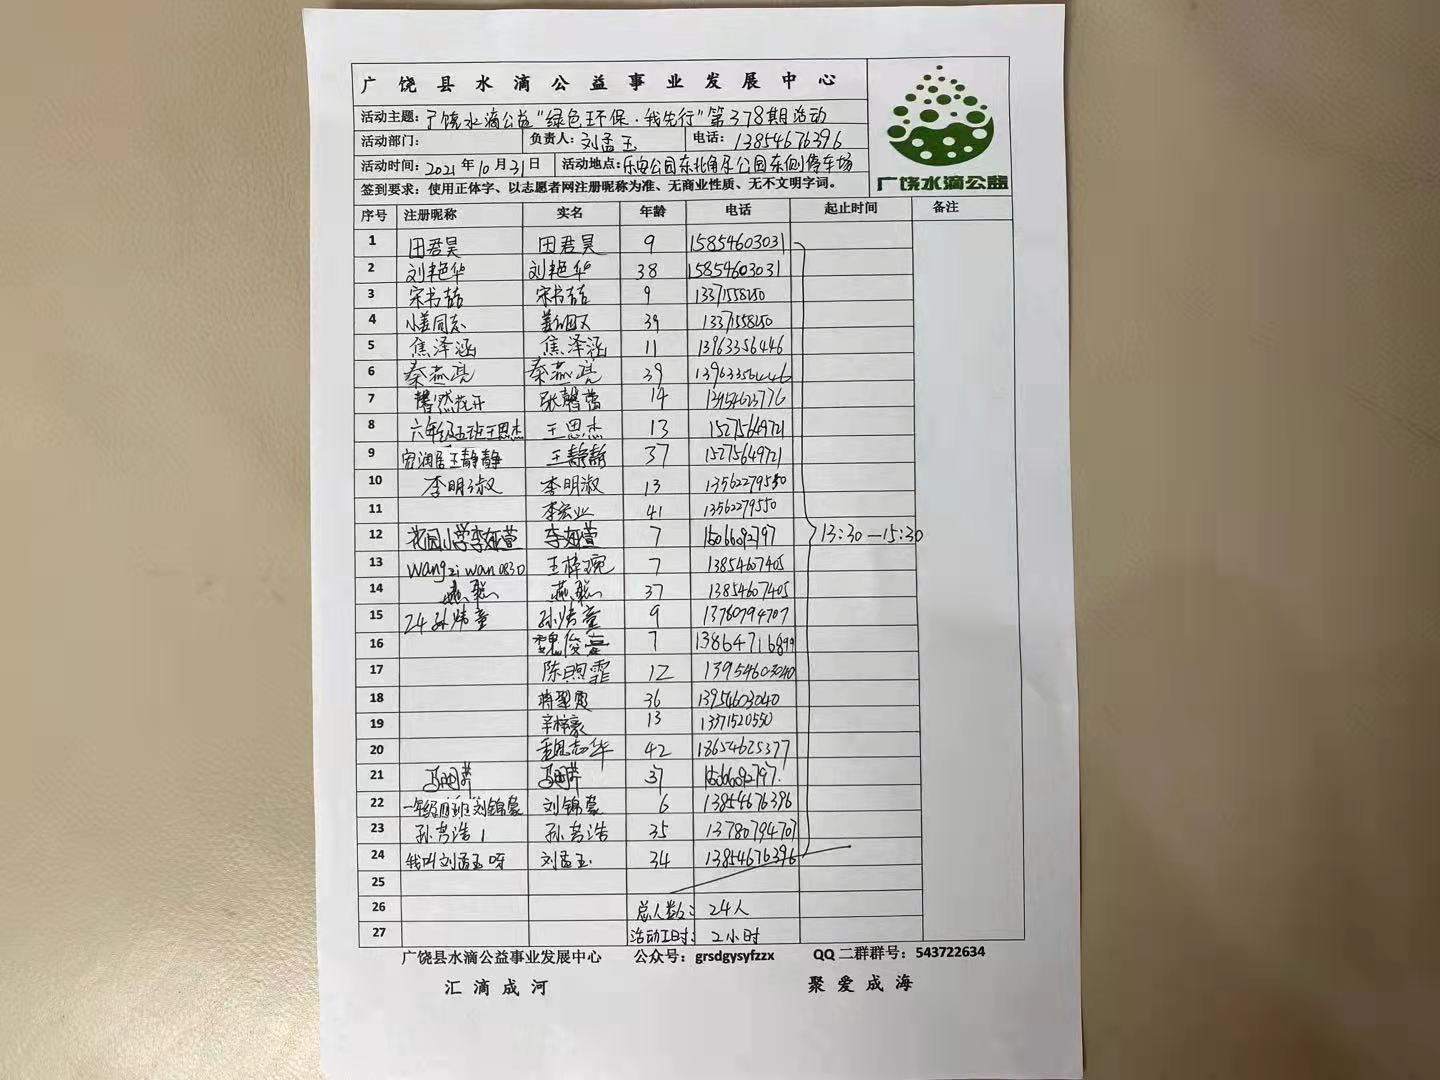 广饶县水滴公益事业发展中心
活动主题：广饶水滴公益"绿色环保·我先行"第378期活动
活动部门： 负责人：刘孟玉 电话：13854676396
活动时间：2021年10月31日 活动地点：乐安公园东北角及公园东侧停车场
广饶水滴公益
签到要求：使用正体字、以志愿者网注册昵称为准、无商业性质、无不文明字词。
序号 注册昵称 实名 年龄 电话 起止时间 备注
1 田君昊 田君昊 9 15854603031
2 刘艳华 刘艳华 38 15854603031
3 宋书喆 宋书喆 9 13371558250
4 小姜同志 39 13371558250
5 焦泽涵 焦泽涵 11 13963356446
6 秦燕亮 秦燕亮 39 13963356446
7 馨然花开 张馨蕾 14 13954623776
8 六年级五班王思杰 王思杰 13 15275649721
9 王静静 王静静 37 15275649721
10 李明淑 李明淑 13 13562279550
11 李宏业 41 13562279550
12 花园小学李娅萱 李娅萱 7 15066092797 13:30—15:30
13 wangziwan0830 王梓琬 7 13854607405
14 燕聪 燕聪 37 13854607405
15 24孙炜童 孙炜童 9 13780794707
16 魏俊熹 7 13864716899
17 陈煦霏 12 13954603040
18 36 13954603040
19 辛梓豪 13 13371520550
20 魏志华 42 18654625377
21 37 15066092797
22 一年级四班刘锦豪 刘锦豪 6 13854676396
23 孙书浩1 孙书浩 35 13780794707
24 我叫刘孟玉呀 刘孟玉 34 13854676396
25
26 总人数：24人
27 活动工时：2小时
广饶县水滴公益事业发展中心 公众号：grsdgysyfzzx QQ二群群号：543722634
汇滴成河 聚爱成海